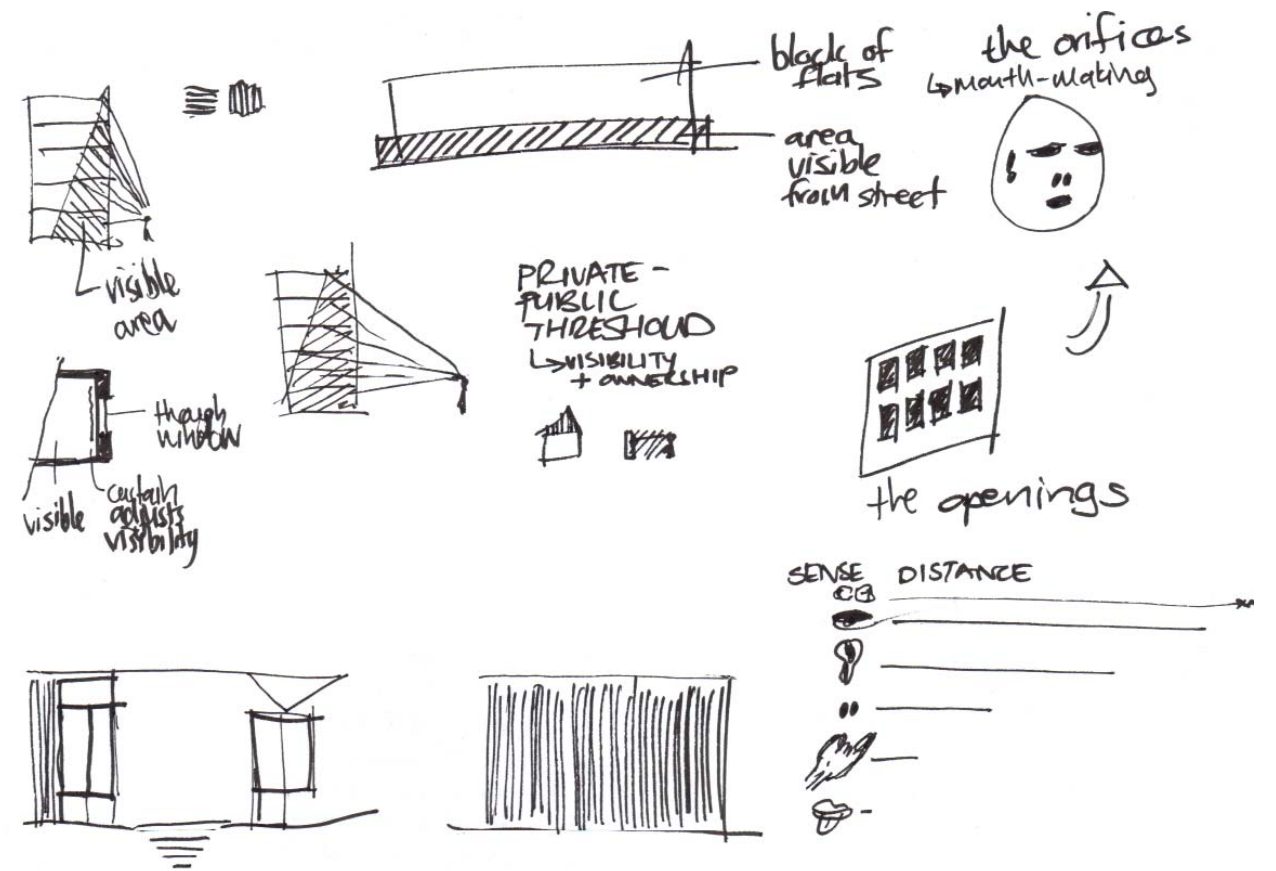 block of
flats
area
visible
from street
the orifices
↳mouth-making
visible
area
PRIVATE -
PUBLIC
THRESHOLD
↳VISIBILITY
+ OWNERSHIP
though
WINDOW
visible
curtain
adjusts
visibility
the openings
SENSE DISTANCE